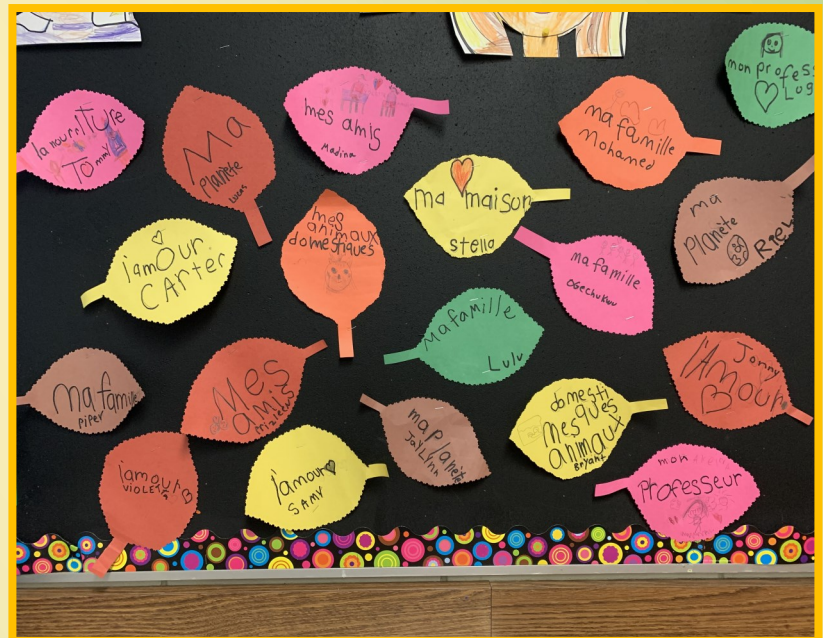 la nourriture
Tommy
Ma
planète
Lucas
mes amis
Madina
ma famille
Mohamed
mon profess
Log
ma maison
stella
ma
planète
RieL
l'amOur
CArter
mes
animaux
domestiques
ma famille
Ogechukwu
Mafamille
Lulu
ma famille
piper
Mes
amis
l'AMour
Jonny
maplanète
Jaylinn
domesti
mesques
animaux
Bryant
l'amour
VIOLET B
l'amour
SAMY
mon
Professeur